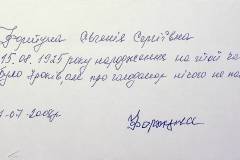 Фортуна Євгенія Сергіївна
15.08.1925 року народження на той ча
було 8 років, але про голодомор нічого не по
1-07-2008р Фортуна